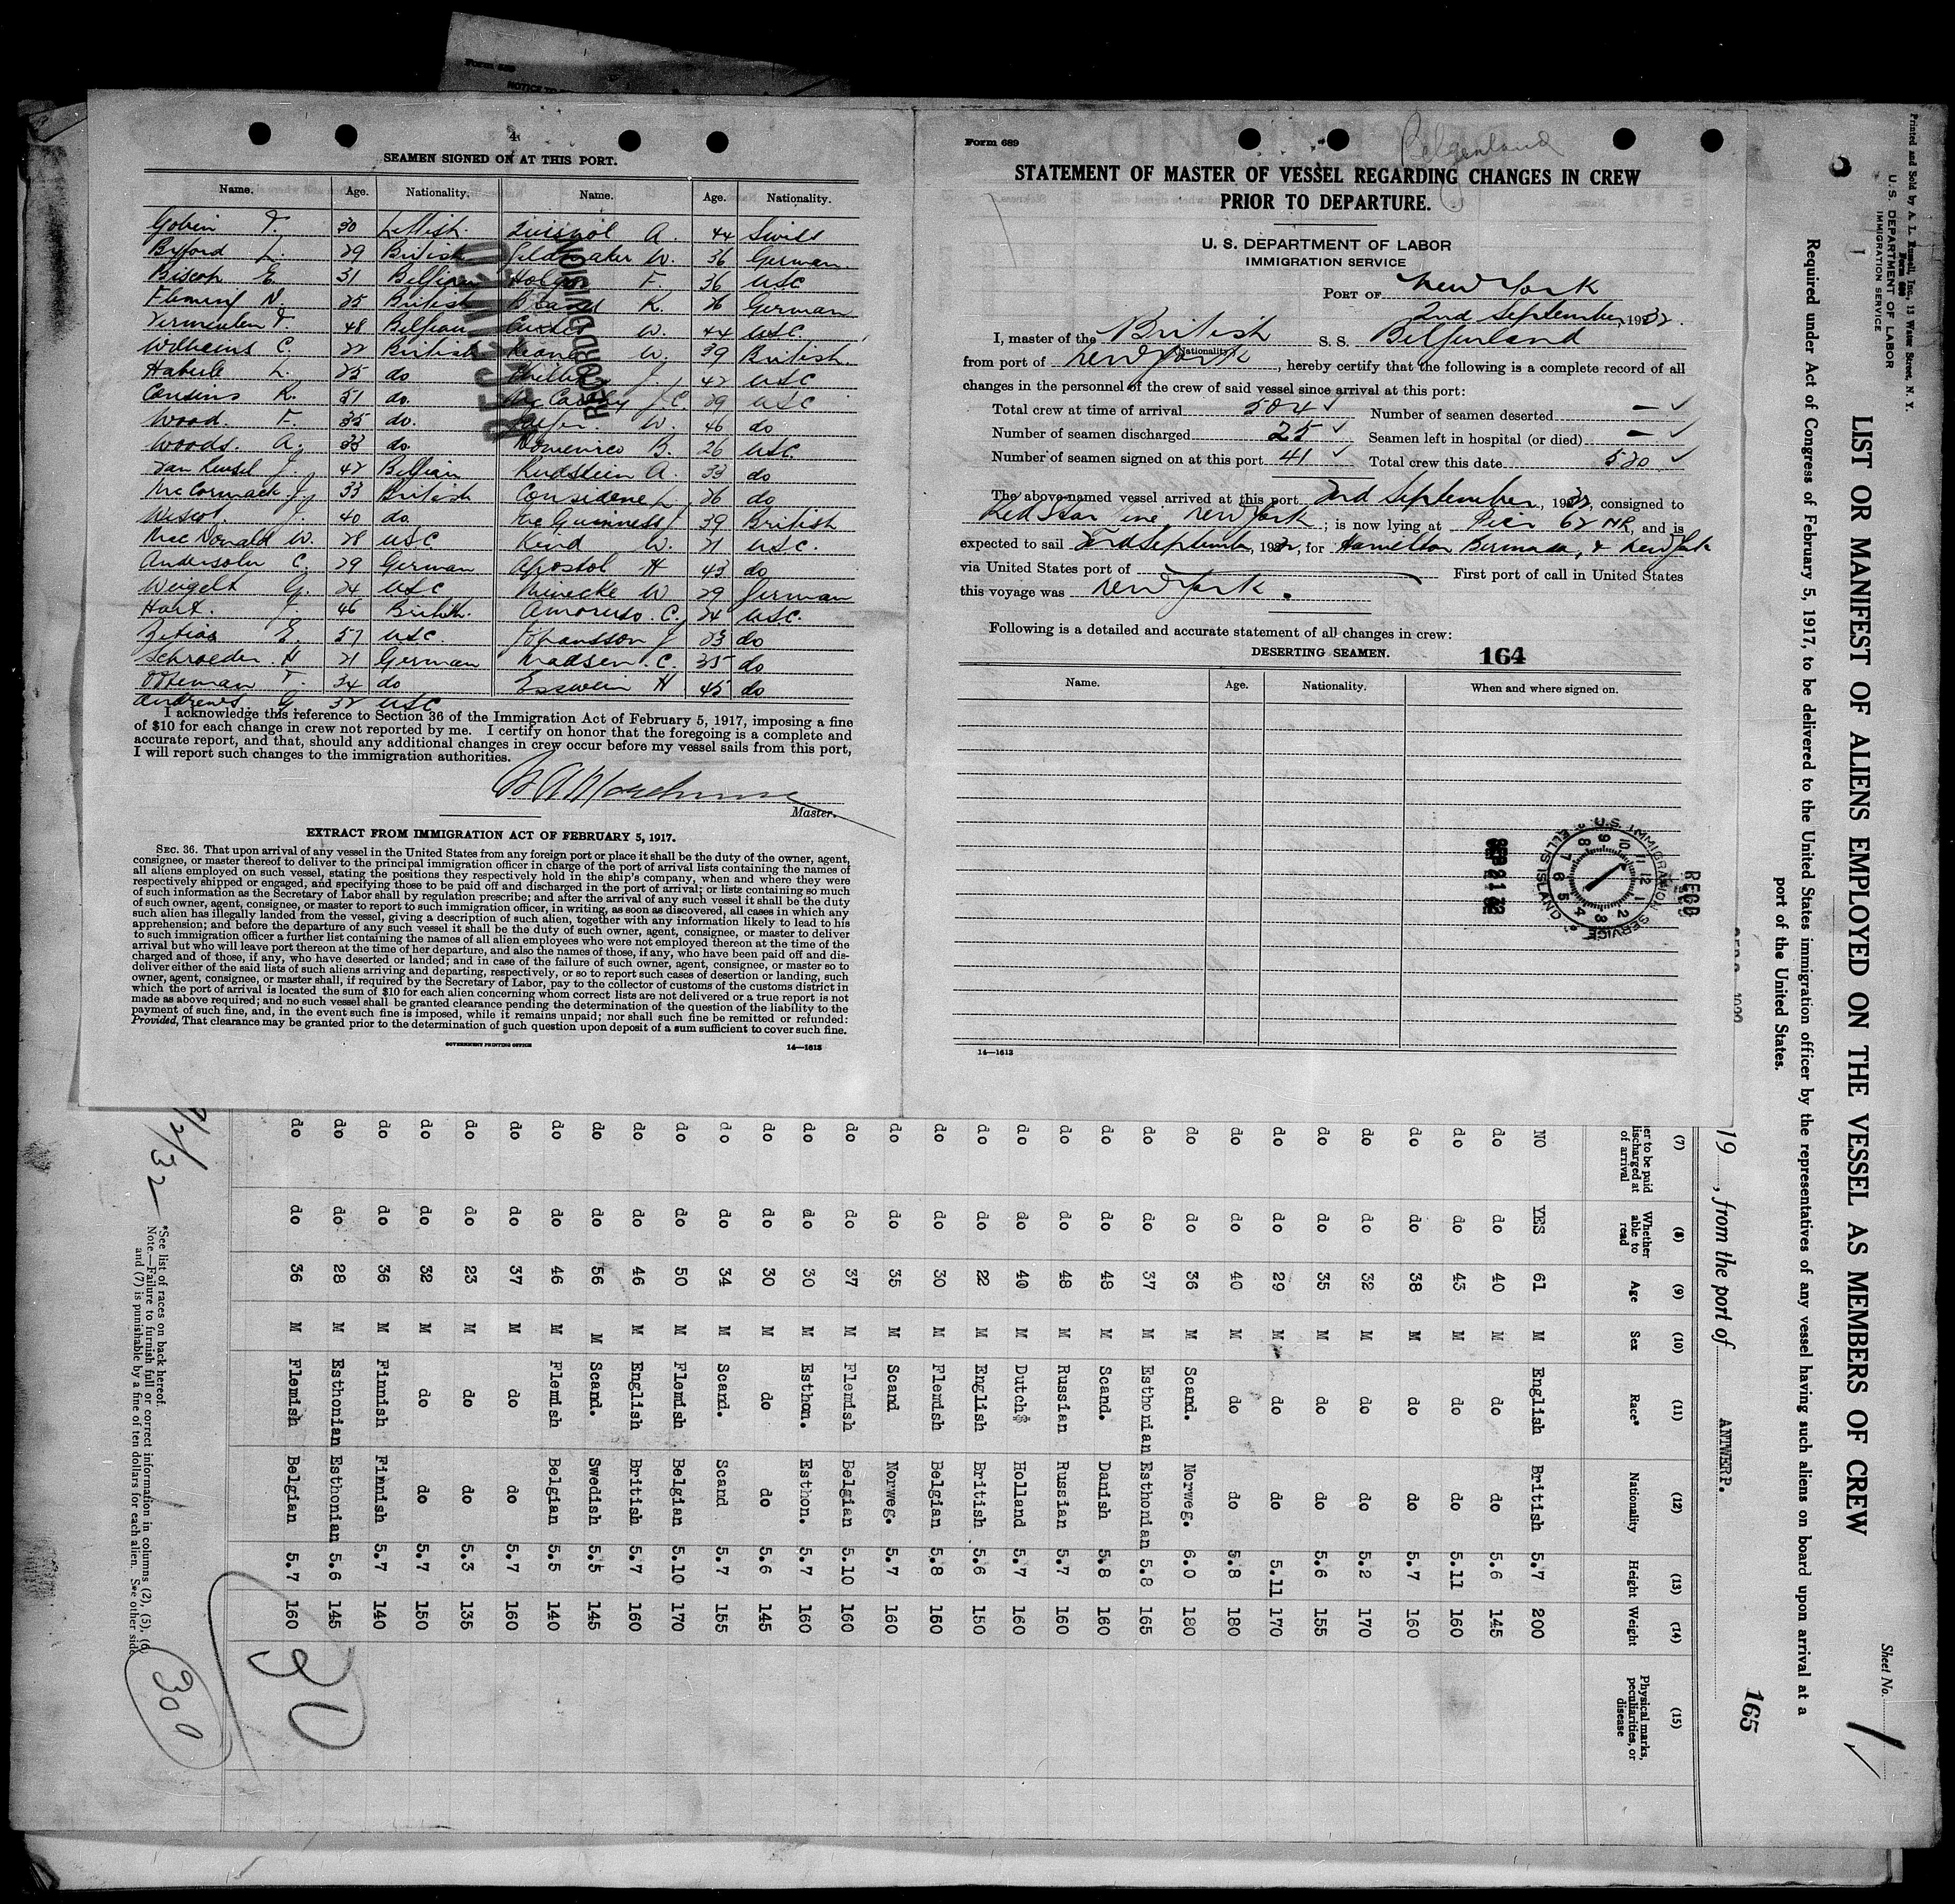 Form 689
NOTICE TO
4
SEAMEN SIGNED ON AT THIS PORT.
Name. Age. Nationality. Name. Age. Nationality.
Gobin T. 30 Lettish. A. 44 Swiss
Byford L. 29 British W. 36 German.
Biscop E. 31 Belgian F. 36 USC
Fleming N. 25 British K. 26 German
Vermeulen F. 48 Belgian W. 44 USC
Williams C. 22 British W. 39 British.
Haberle L. 25 do J. 42 USC
Cousins R. 31 do. McCarthy J.C. 29 USC
Wood. F. 35 do. W. 46 do
Woods. A. 33 do. Domenico B. 26 USC.
Van J. 42 Belgian Rudstein A. 33 do
McCormack J. 33 British Considene L. 26 do
J. 40 do. McGuinness J. 39 British
MacDonald W. 28 USC Kind W. 21 USC.
Andersohn C. 29 German Apostol H 43 do
Weigelt G. 24 USC Meinecke W 29 German
Hart. J. 46 British. Amoruso. C. 24 USC.
E. 57 USC Johansson J 23 do
Schroeder. H 21 German Madsen. C. 35 do
Otteman F. 34 do Esswein H 45 do
Andrews G 32 USC
RECEIVED
RECORD DIVISION
I acknowledge this reference to Section 36 of the Immigration Act of February 5, 1917, imposing a fine
of $10 for each change in crew not reported by me. I certify on honor that the foregoing is a complete and
accurate report, and that, should any additional changes in crew occur before my vessel sails from this port,
I will report such changes to the immigration authorities.
Master.
EXTRACT FROM IMMIGRATION ACT OF FEBRUARY 5, 1917.
SEC. 36. That upon arrival of any vessel in the United States from any foreign port or place it shall be the duty of the owner, agent,
consignee, or master thereof to deliver to the principal immigration officer in charge of the port of arrival lists containing the names of
all aliens employed on such vessel, stating the positions they respectively hold in the ship's company, when and where they were
respectively shipped or engaged, and specifying those to be paid off and discharged in the port of arrival; or lists containing so much
of such information as the Secretary of Labor shall by regulation prescribe; and after the arrival of any such vessel it shall be the duty
of such owner, agent, consignee, or master to report to such immigration officer, in writing, as soon as discovered, all cases in which any
such alien has illegally landed from the vessel, giving a description of such alien, together with any information likely to lead to his
apprehension; and before the departure of any such vessel it shall be the duty of such owner, agent, consignee, or master to deliver
to such immigration officer a further list containing the names of all alien employees who were not employed thereon at the time of the
arrival but who will leave port thereon at the time of her departure, and also the names of those, if any, who have been paid off and dis-
charged and of those, if any, who have deserted or landed; and in case of the failure of such owner, agent, consignee, or master so to
deliver either of the said lists of such aliens arriving and departing, respectively, or so to report such cases of desertion or landing, such
owner, agent, consignee, or master shall, if required by the Secretary of Labor, pay to the collector of customs of the customs district in
which the port of arrival is located the sum of $10 for each alien concerning whom correct lists are not delivered or a true report is not
made as above required; and no such vessel shall be granted clearance pending the determination of the question of the liability to the
payment of such fine, and, in the event such fine is imposed, while it remains unpaid; nor shall such fine be remitted or refunded:
Provided, That clearance may be granted prior to the determination of such question upon deposit of a sum sufficient to cover such fine.
GOVERNMENT PRINTING OFFICE 14—1613
Form 689 Belgenland
STATEMENT OF MASTER OF VESSEL REGARDING CHANGES IN CREW
PRIOR TO DEPARTURE.
U. S. DEPARTMENT OF LABOR
IMMIGRATION SERVICE
PORT OF New York
2nd September, 1932.
I, master of the British S. S. Belgenland
(Nationality)
from port of New York, hereby certify that the following is a complete record of all
changes in the personnel of the crew of said vessel since arrival at this port:
Total crew at time of arrival 504 ✓ Number of seamen deserted — ✓
Number of seamen discharged 25 ✓ Seamen left in hospital (or died) — ✓
Number of seamen signed on at this port 41 ✓ Total crew this date 520 ✓
The above-named vessel arrived at this port 2nd September, 1932, consigned to
Red Star Line, New York; is now lying at Pier 62 NR, and is
expected to sail 2nd September, 1932, for Hamilton Bermuda, & New York
via United States port of First port of call in United States
this voyage was New York.
Following is a detailed and accurate statement of all changes in crew:
DESERTING SEAMEN. 164
Name. Age. Nationality. When and where signed on.
REC'D
U.S. IMMIGRATION SERVICE ELLIS ISLAND
12 1 2 3 4 5 6 7 8 9 10 11
14—1613
Printed and Sold by A. L. Russell, Inc., 13 Water Street, N. Y.
Form 680
U. S. DEPARTMENT OF LABOR
IMMIGRATION SERVICE
Sheet No. 1
LIST OR MANIFEST OF ALIENS EMPLOYED ON THE VESSEL AS MEMBERS OF CREW
Required under Act of Congress of February 5, 1917, to be delivered to the United States immigration officer by the representatives of any vessel having such aliens on board upon arrival at a
port of the United States.
165
19 , from the port of ANTWERP.
(7) (8) (9) (10) (11) (12) (13) (14) (15)
er to be paid discharged at of arrival Whether able to read Age Sex Race* Nationality Height Weight Physical marks, peculiarities, or disease
NO YES 61 M English British 5.7 200
do do 40 M do do 5.6 145
do do 43 M do do 5.11 160
do do 38 M do do 5.7 160
do do 32 M do do 5.2 170
do do 35 M do do 5.6 155
do do 29 M do do 5.11 170
do do 40 M do do 5.8 180
do do 36 M Scand. Norweg. 6.0 180
do do 37 M Esthonian Esthonian 5.8 165
do do 48 M Scand. Danish 5.8 160
do do 48 M Russian Russian 5.7 160
do do 40 M Dutch Holland 5.7 160
do do 22 M English British 5.6 150
do do 30 M Flemish Belgian 5.8 160
do do 35 M Scand Norweg. 5.7 160
do do 37 M Flemish Belgian 5.10 160
do do 30 M Esthon. Esthon. 5.7 160
do do 30 M do do 5.6 145
do do 34 M Scand. Scand 5.7 155
do do 50 M Flemish Belgian 5.10 170
do do 46 M English British 5.7 160
do do 56 M Scand. Swedish 5.5 145
do do 46 M Flemish Belgian 5.5 140
do do 37 M do do 5.7 160
do do 23 M do do 5.3 135
do do 32 M do do 5.7 150
do do 36 M Finnish Finnish 5.7 140
do do 28 M Esthonian Esthonian 5.6 145
do do 36 M Flemish Belgian 5.7 160
30
9/2/32
*See list of races on back hereof.
Note.—Failure to furnish full or correct information in columns (2), (5), (6)
and (7) is punishable by a fine of ten dollars for each alien. See other side.
300